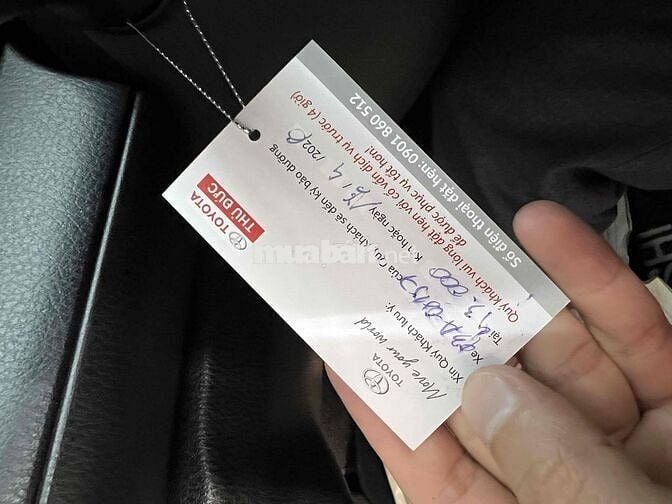 TOYOTA
Move your world
TOYOTA
THỦ ĐỨC
Xin Quý Khách lưu ý:
Xe của Quý khách sẽ đến kỳ bảo dưỡng
Tại 3.000 km hoặc ngày / 4 / 202
Quý khách vui lòng đặt hẹn với cố vấn dịch vụ trước (4 giờ)
để được phục vụ tốt hơn!
Số điện thoại đặt hẹn: 0901 860 512
muaban.net